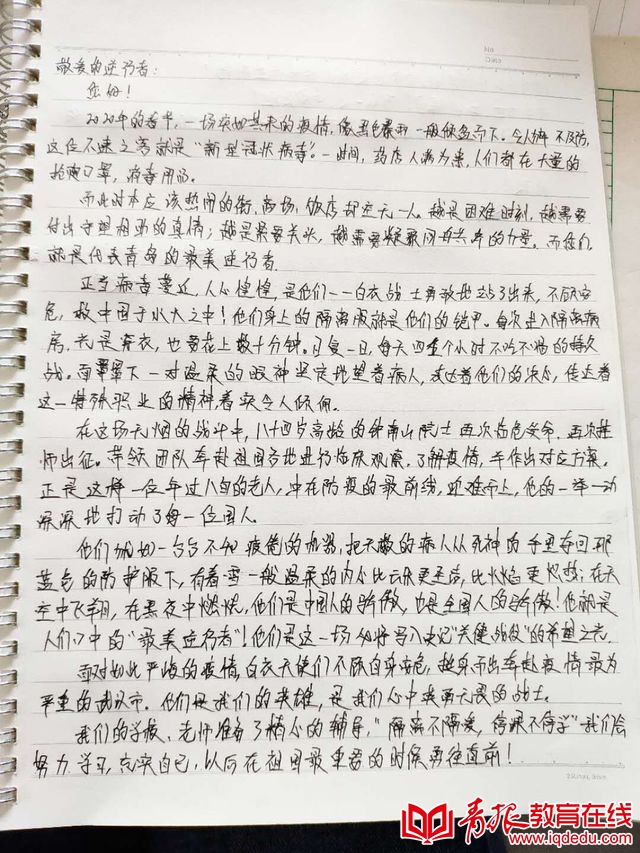 NO
DATE
敬爱的逆行者：
您好！
2020年的春节，一场突如其来的疫情，像黑色暴雨一般倾盆而下。令人猝不及防，
这位不速之客就是“新型冠状病毒”。一时间，药店人满为患，人们都在大量的
抢购口罩，消毒用品。
而此时本应该热闹的街，商场，饭店却空无一人。越是困难时刻，越需要
付出守望相助的真情；越是紧要关头，越需要凝聚同舟共济的力量。而他们
就是代表青岛的最美逆行者。
正当病毒蔓延，人心惶惶，是他们——白衣战士勇敢地站了出来，不顾安
危，救中国于水火之中！他们身上的隔离服就是他们的铠甲。每次进入隔离病
房，光是穿衣，也要花上数十分钟。日复一日，每天四五个小时不吃不喝的持久
战。面罩下一对温柔的眼神坚定地望着病人，表达着他们的决心，传达着
这一特殊职业的精神，着实令人倾佩。
在这场无烟的战斗中，八十四岁高龄的钟南山院士再次临危受命，再次挂
师出征。带领团队奔赴祖国各地进行临床观察，了解疫情，并作出对应方案。
正是这样一位年过八旬的老人，冲在防疫的最前线，迎难而上，他的一举一动
深深地打动了每一位国人。
他们如同一台台不知疲倦的机器，把无数的病人从死神的手里夺回那
蓝色的防护服下，有着雪一般温柔的内心比云朵更圣洁，比火焰更炽热；在天
空中飞翔，在黑夜中燃烧，他们是中国人的骄傲，也是全国人的骄傲！他就是
人们心中的“最美逆行者”！他们是这一场必将写入史记“关键战役”的希望之光。
面对如此严峻的疫情，白衣天使们不顾自身安危，挺身而出奔赴疫情最为
严重的武汉市。他们是我们的英雄，是我们心中英勇无畏的战士。
我们的学校、老师准备了精心的辅导，“隔离不隔爱，停课不停学”我们会
努力学习，充实自己，以后在祖国最重要的时候勇往直前！
青报教育在线
www.iqdedu.com